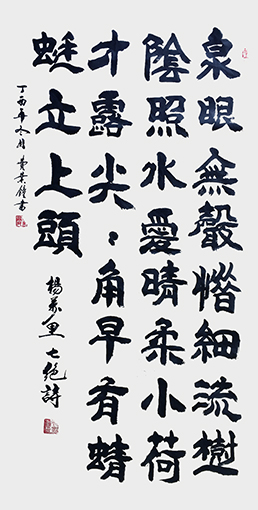 泉眼無聲惜細流樹
陰照水愛晴柔小荷
才露尖、角早有蜻
蜓立上頭
楊萬里七絕詩
丁酉年冬月